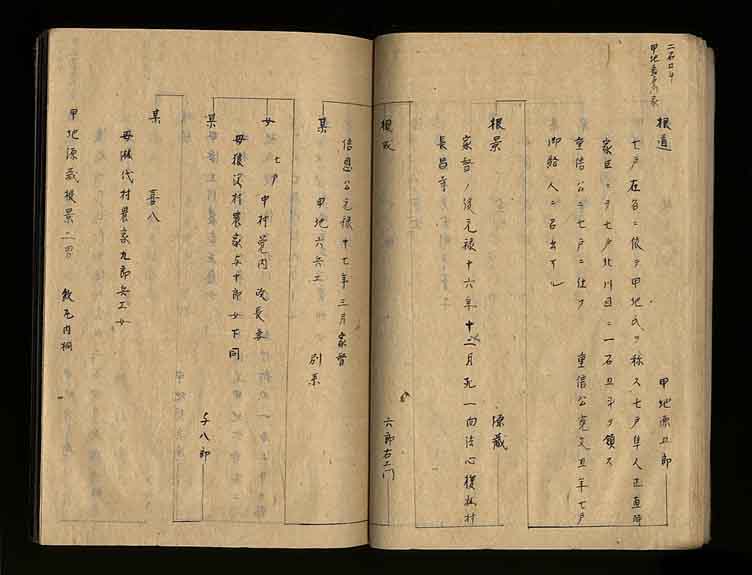 二石廿斗
甲地
根道 甲地源五郎
七戸在名ニ依テ甲地氏ヲ称ス七戸隼人正直時
家臣ニテ七戸北川目ニ一石五斗ヲ領ス
重信公ニ七戸ニ仕フ 重信公寛文五年七戸
御給人ニ召出サル
根景 源蔵
家督ノ後元禄十六年十二月死一向法心
村
長昌寺
根政 六郎右エ門
信恩公元禄十七年三月家督
某 甲地六兵エ 別系
女 七戸 中村覚内
某 与八郎
母後沢村農家与十郎女下同
某 喜八
母淋代村農家九郎兵エ女
甲地源蔵根景二男